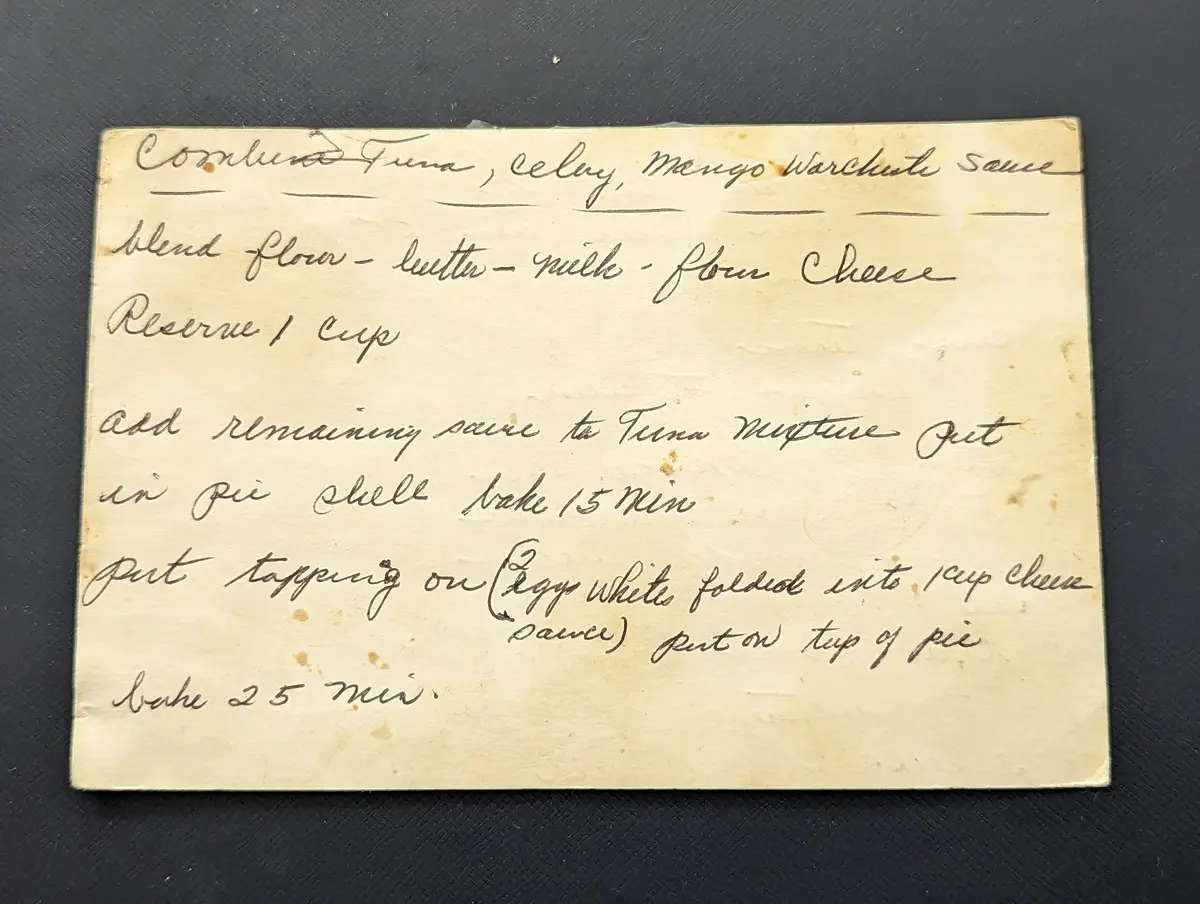 Combine Tuna, Celery, Mango Warchests Sauce
blend flour - butter - milk - flour Cheese
Reserve 1 cup
add remaining sauce to Tuna Mixture put
in pie shell bake 15 Min
put topping on (2 eggs whites folded into 1 cup cheese
sauce) put on top of pie
bake 25 Min.